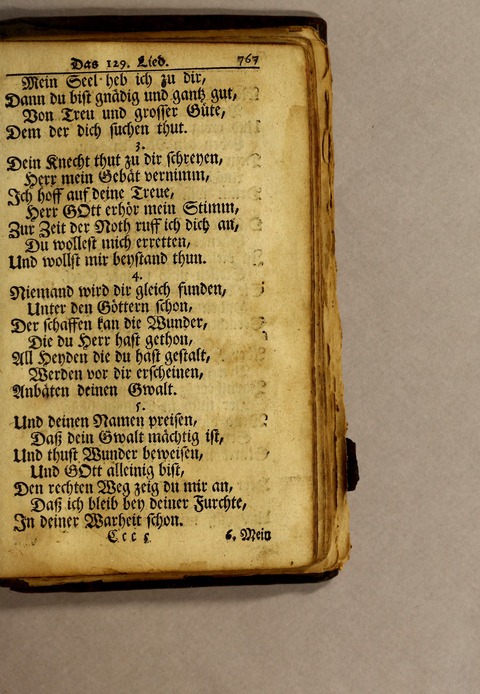 Das 129. Lied. 767
Mein Seel heb ich zu dir,
Dann du bist gnädig und gantz gut,
Von Treu und grosser Güte,
Dem der dich suchen thut.
3.
Dein Knecht thut zu dir schreyen,
Herr mein Gebät vernimm,
Ich hoff auf deine Treue,
Herr GOtt erhör mein Stimm,
Zur Zeit der Noth ruff ich dich an,
Du wollest mich erretten,
Und wollst mir beystand thun.
4.
Niemand wird dir gleich funden,
Unter den Göttern schon,
Der schaffen kan die Wunder,
Die du Herr hast gethon,
All Heyden die du hast gestalt,
Werden vor dir erscheinen,
Anbäten deinen Gwalt.
5.
Und deinen Namen preisen,
Daß dein Gwalt mächtig ist,
Und thust Wunder beweisen,
Und GOtt alleinig bist,
Den rechten Weg zeig du mir an,
Daß ich bleib bey deiner Furchte,
In deiner Warheit schon.
Ccc 6. Mein